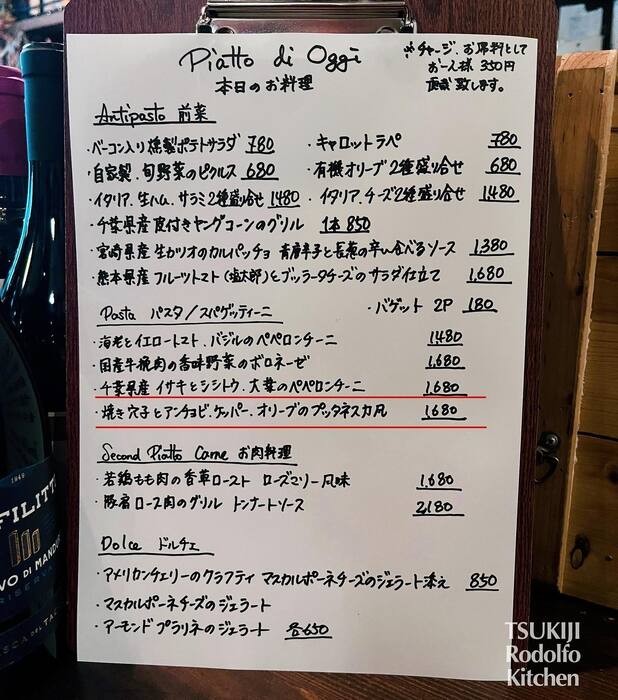 Piatto di Oggi
本日のお料理
※チャージ、お席料として
お一人様 350円
頂戴致します。
Antipasto 前菜
・ベーコン入り燻製ポテトサラダ 780
・キャロットラペ 780
・自家製、旬野菜のピクルス 680
・有機オリーブ2種盛り合せ 680
・イタリア、生ハム、サラミ2種盛り合せ 1,480
・イタリア、チーズ2種盛り合せ 1,480
・千葉県産皮付きヤングコーンのグリル 1本 850
・宮崎県産 生カツオのカルパッチョ 青唐辛子と長葱の辛い食べるソース 1,380
・熊本県産 フルーツトマト(塩太郎)とブッラータチーズのサラダ仕立て 1,680
Pasta パスタ/スパゲッティーニ
・バゲット 2P 180
・海老とイエロートマト、バジルのペペロンチーニ 1480
・国産牛挽肉の香味野菜のボロネーゼ 1,680
・千葉県産 イサキとシシトウ、大葉のペペロンチーニ 1,680
・焼き穴子とアンチョビ、ケッパー、オリーブのプッタネスカ風 1,680
Second Piatto Carne お肉料理
・若鶏もも肉の香草ロースト ローズマリー風味 1,680
・豚肩ロース肉のグリル トンナートソース 2,180
Dolce ドルチェ
・アメリカンチェリーのクラフティ マスカルポーネチーズのジェラート添え 850
・マスカルポーネチーズのジェラート
・アーモンドプラリネのジェラート 各650
FILITT
VO DI MANDUR
RISERV
TSUKIJI
Rodolfo
Kitchen